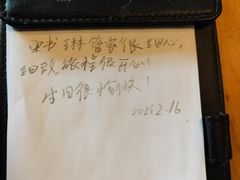 书琳管家很细心,
细致旅程很开心!
生日很愉快!
2025.2.16